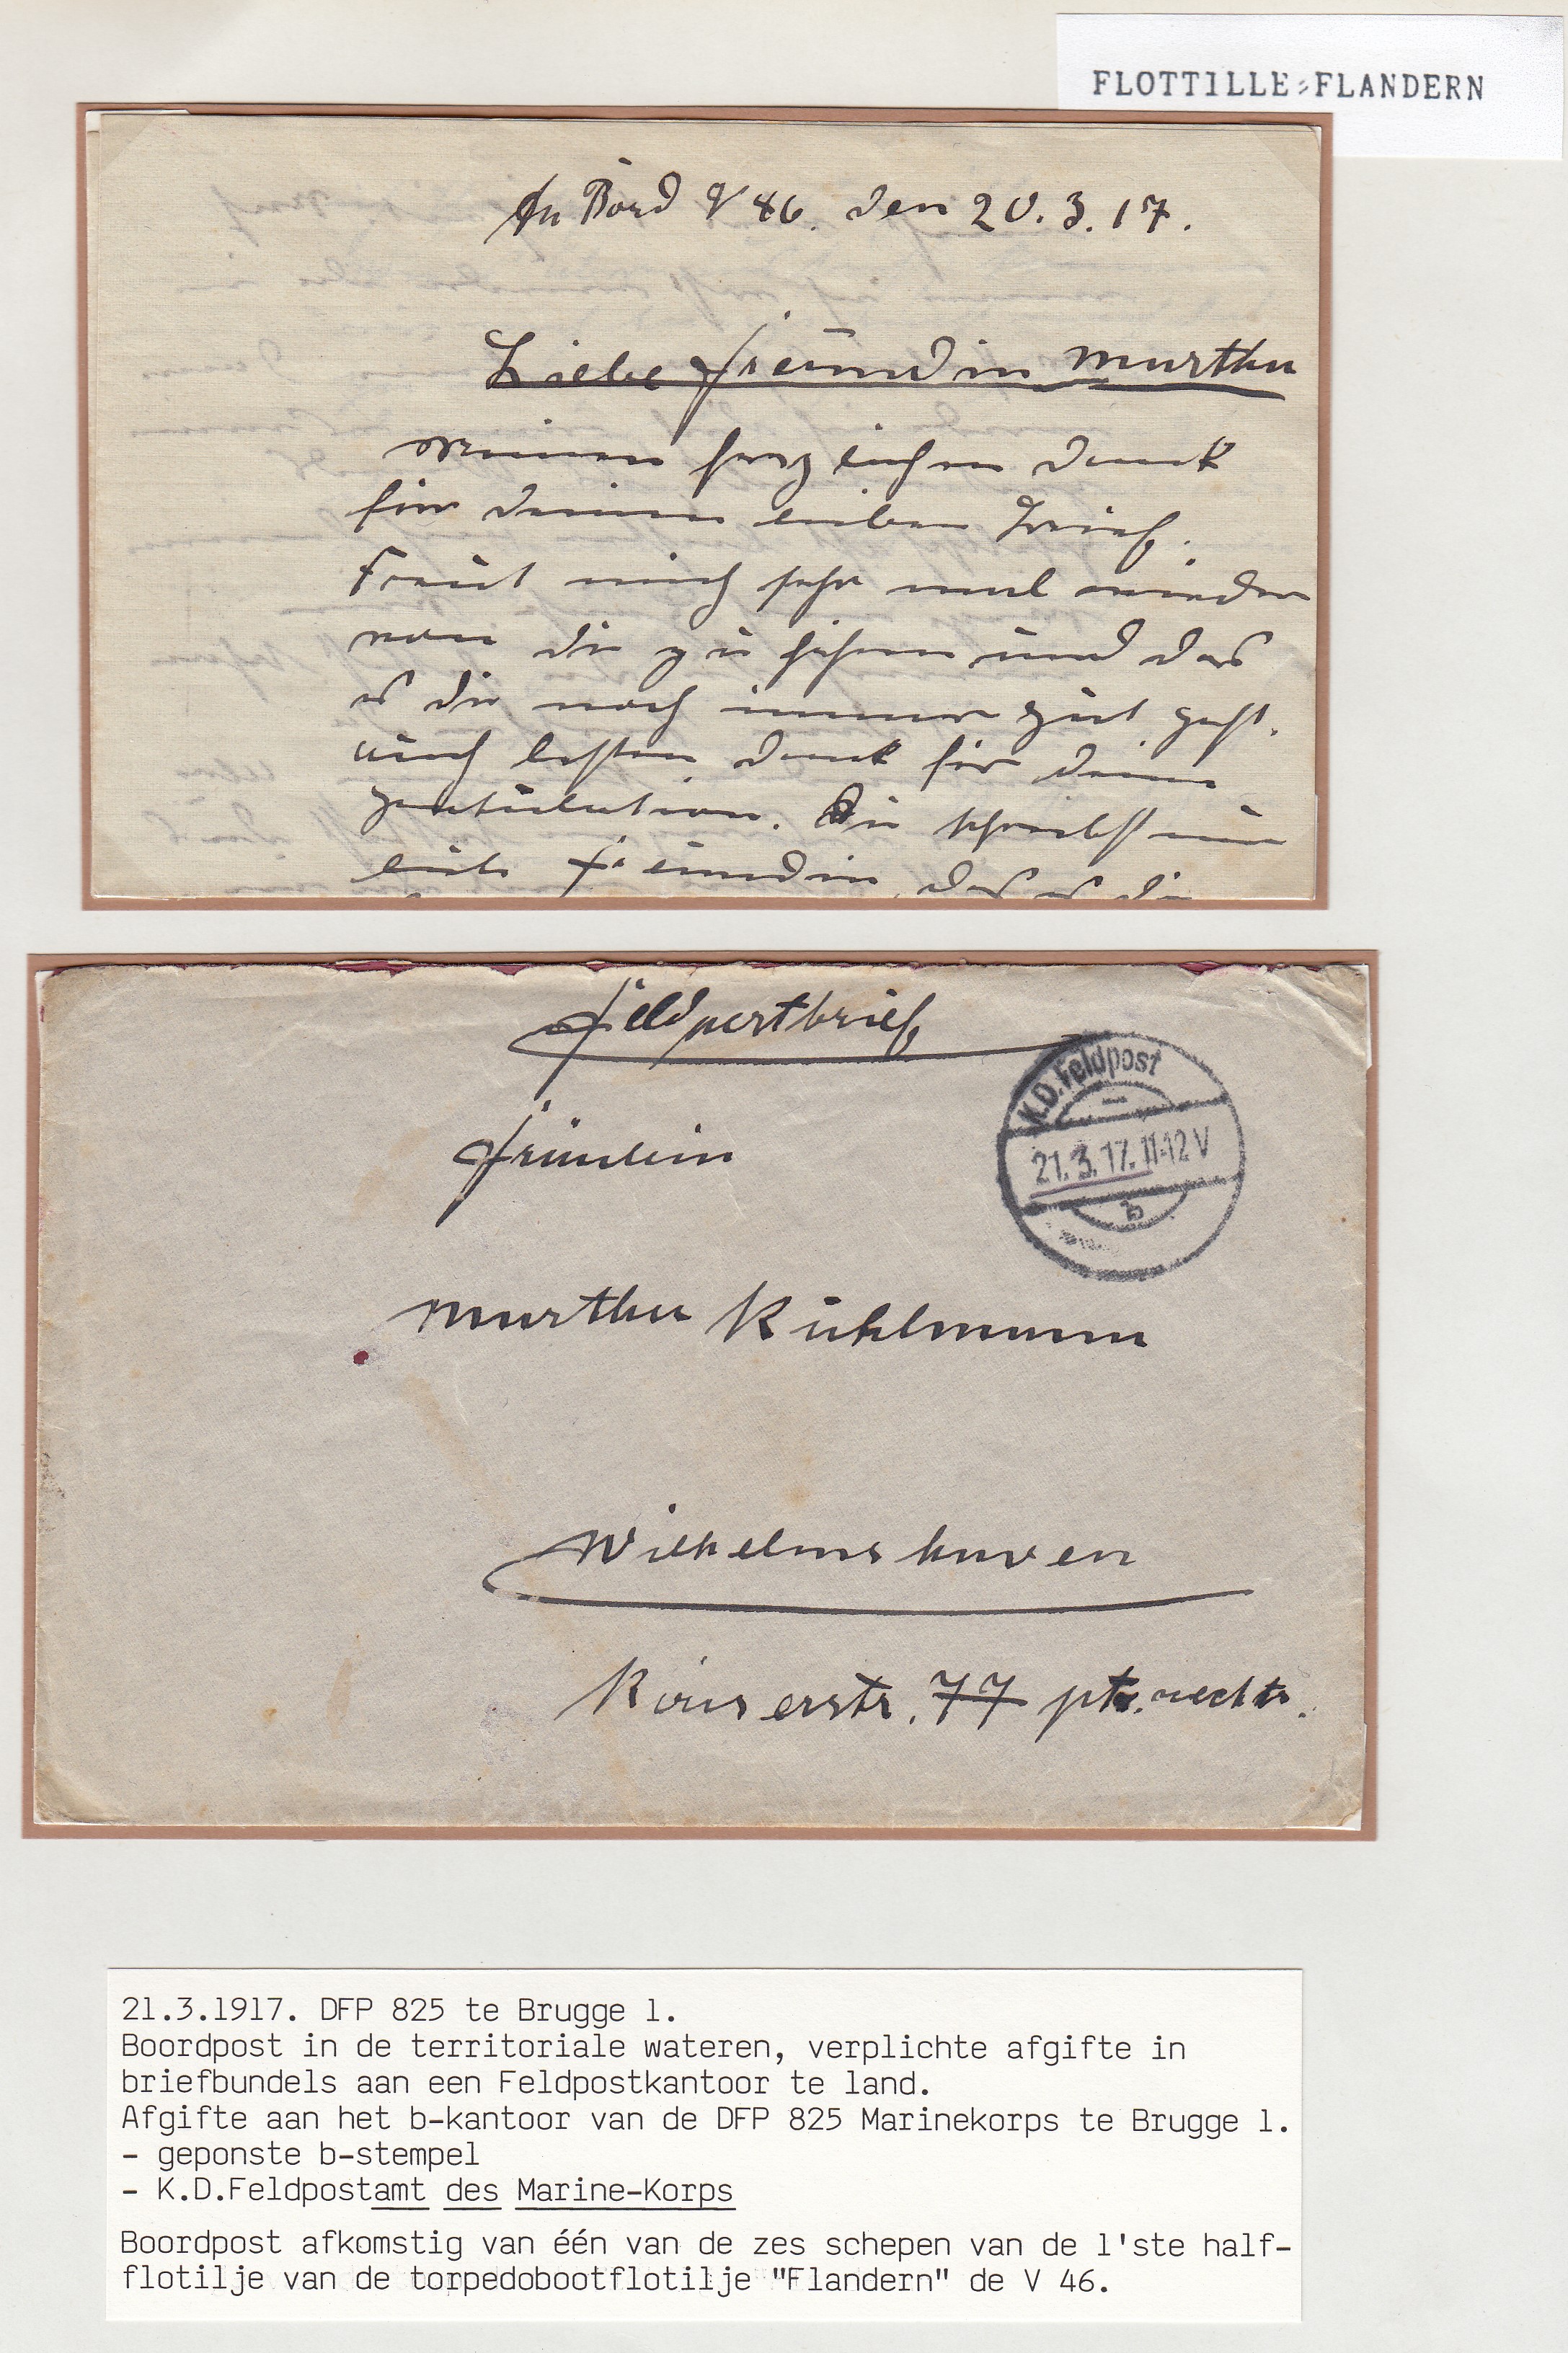 FLOTTILLE=FLANDERN
An Bord V 46. den 20.3.17.
Liebe Freundin Martha
Meinen herzlichen Dank
für deinen lieben Brief.
Freut mich sehr mal wieder
von dir zu hören und das
es dir noch immer gut geht.
auch besten Dank für deine
gratulation. Du schreibst mir
liebe Freundin, das es dir
Feldpostbrief
K.D.Feldpost
21.3.17.11-12V
b
Fräulein
Martha Kühlmann
Wilhelmshaven
Kaiserstr. 77 ptr. rechts.
21.3.1917. DFP 825 te Brugge 1.
Boordpost in de territoriale wateren, verplichte afgifte in
briefbundels aan een Feldpostkantoor te land.
Afgifte aan het b-kantoor van de DFP 825 Marinekorps te Brugge 1.
- geponste b-stempel
- K.D.Feldpostamt des Marine-Korps
Boordpost afkomstig van één van de zes schepen van de 1'ste half-
flotilje van de torpedobootflotilje "Flandern" de V 46.